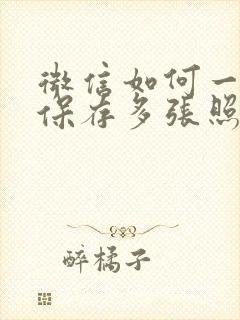 微信如何一
保存多張照
醉橘子